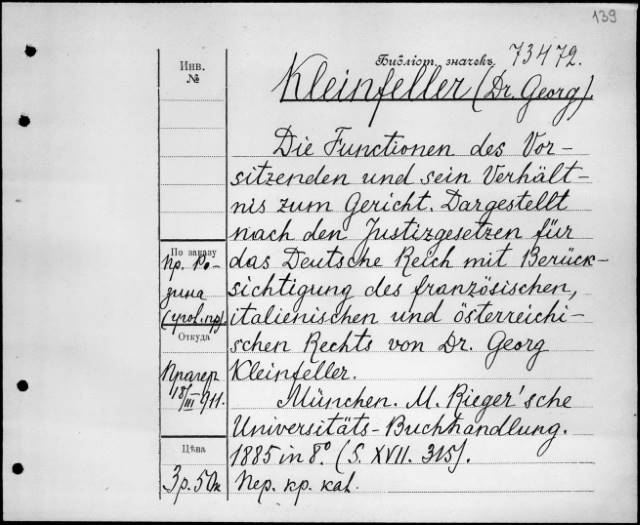 139
Библіот. значекъ 73472.
Инв.
№
Kleinfeller (Dr. Georg).
Die Functionen des Vor-
sitzenden und sein Verhält-
nis zum Gericht. Dargestellt
nach den Justizgesetzen für
das Deutsche Reich mit Berück-
sichtigung des französischen,
italienischen und österreichi-
schen Rechts von Dr. Georg
Kleinfeller.
München. M. Rieger'sche
Universitäts-Buchhandlung.
1885 in 8° (S. XVII. 315).
Пер. кр. кал.
По заказу
Пр. Ро-
зина
(угол. пр)
Откуда
Прагер
18/III 911.
Цѣна
3р. 50к